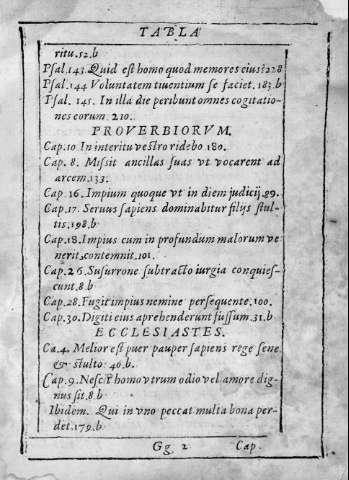 TABLA
ritu.52.b
Psal.143.Quid est homo quod memores eius?228
Psal.144 Voluntatem timentium se faciet. 183.b
Psal. 145. In illa die peribunt omnes cogitatio-
nes eorum 210.
PROVERBIORVM.
Cap.10 In interitu vestro ridebo 180.
Cap. 8. Missit ancillas suas vt vocarent ad
arcem.133.
Cap. 16. Impium quoque vt in diem judicij 99.
Cap.17. Seruus sapiens dominabitur filijs stul-
tis.198.b
Cap.18.Impius cum in profundum malorum ve
nerit, contemnit.101.
Cap.26.Susurrone subtracto iurgia conquies-
cunt.8.b
Cap.28.Fugit impius nemine persequente.100.
Cap.30.Digiti eius aprehenderunt fussum.31.b
ECCLESIASTES.
Ca.4. Melior est puer pauper sapiens rege sene
& stulto 40.b.
Cap.9.Nescit homo vtrum odio vel amore dig-
nus sit.8.b
Ibidem. Qui in vno peccat multa bona per-
det.179.b
Gg 2 Cap.